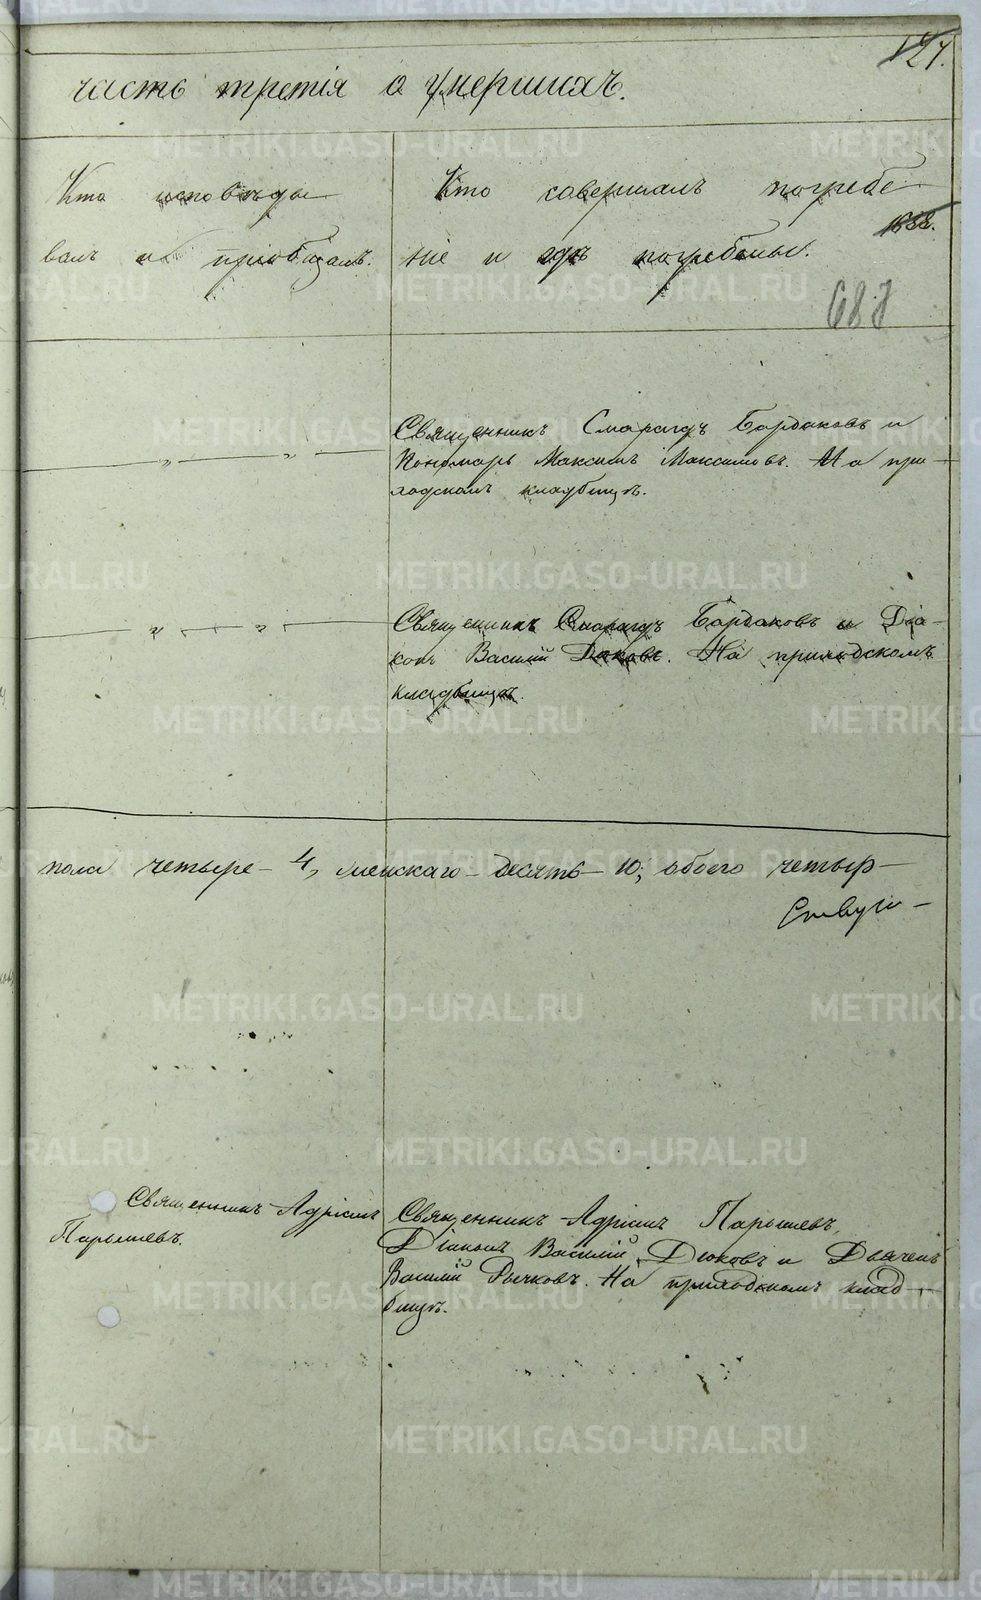 127.
часть третія о умершихъ.
Кто исповѣды
валъ и пріобщалъ.
Кто совершалъ погребе
ніе и гдѣ погребены.
1888.
688
Священникъ Смарагдъ Бордаковъ и
Пономарь Максимъ Максимовъ. На при-
ходскомъ кладбищѣ.
Священникъ Смарагдъ Бордаковъ и Діа-
конъ Василій Дюковъ. На приходскомъ
кладбищѣ.
пола четыре - 4, женскаго - десять - 10; обоего четыр-
Священникъ Адріанъ
Парышевъ.
Священникъ Адріанъ Парышевъ,
Діаконъ Василій Дюковъ и Дьячекъ
Василій Рычковъ. На приходскомъ клад-
бищѣ.
METRIKI.GASO-URAL.RU